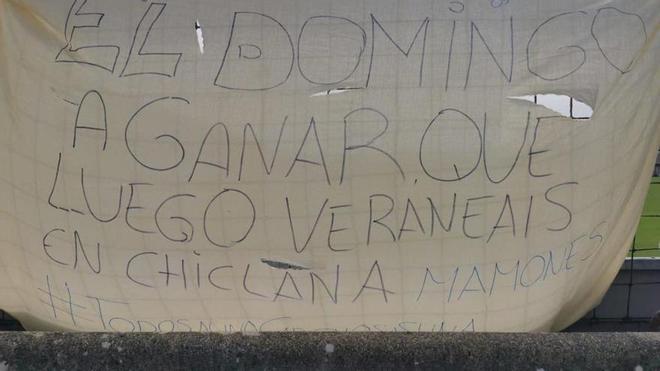 EL DOMINGO
A GANAR, QUE
LUEGO VERANEAIS
EN CHICLANA MAMONES